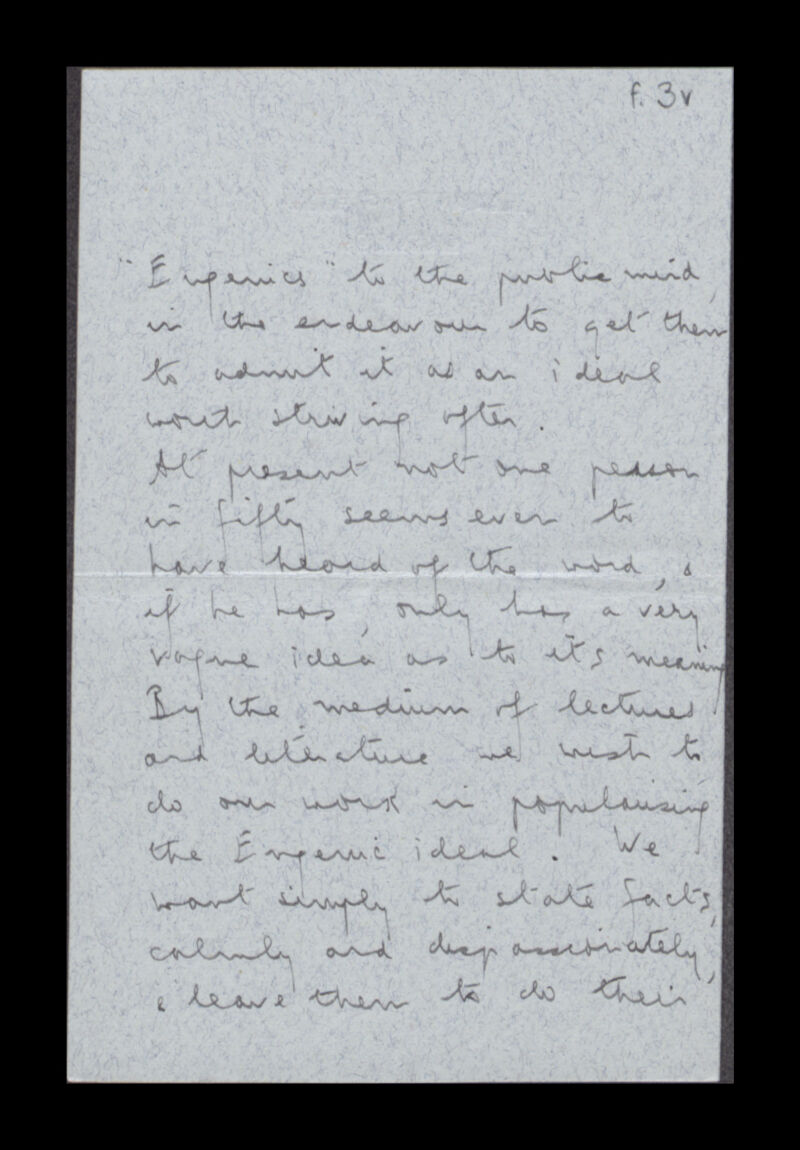 f. 3v
"Eugenics" to the public mind,
in the endeavour to get them
to admit it as an ideal
worth striving after.
At present not one person
in fifty seems even to
have heard of the word, &
if he has, only has a very
vague idea as to it's meaning.
By the medium of lectures
and literature we wish to
do our work in popularising
the Eugenic ideal. We
want simply to state facts,
calmly and dispassionately,
& leave them to do their